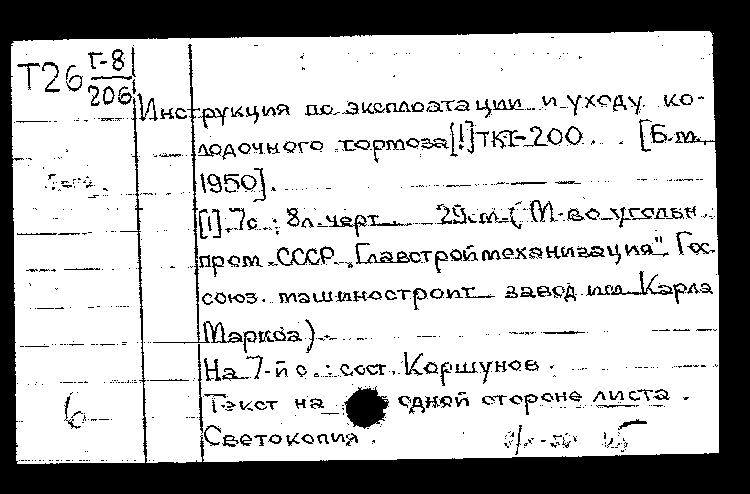 Т26 Г-8
206
Инструкция по эксплоатации и уходу ко-
лодочного тормоза [!] ТКТ-200. [Б.м.,
1950].
[1], 7с.; 8л. черт. 29см. (М-во угольн.
пром. СССР. „Главстроймеханизация". Гос.
союз. машиностроит. завод им. Карла
Маркса).
На 7-й с.: сост. Коршунов.
6 Текст на одной стороне листа.
Светокопия.